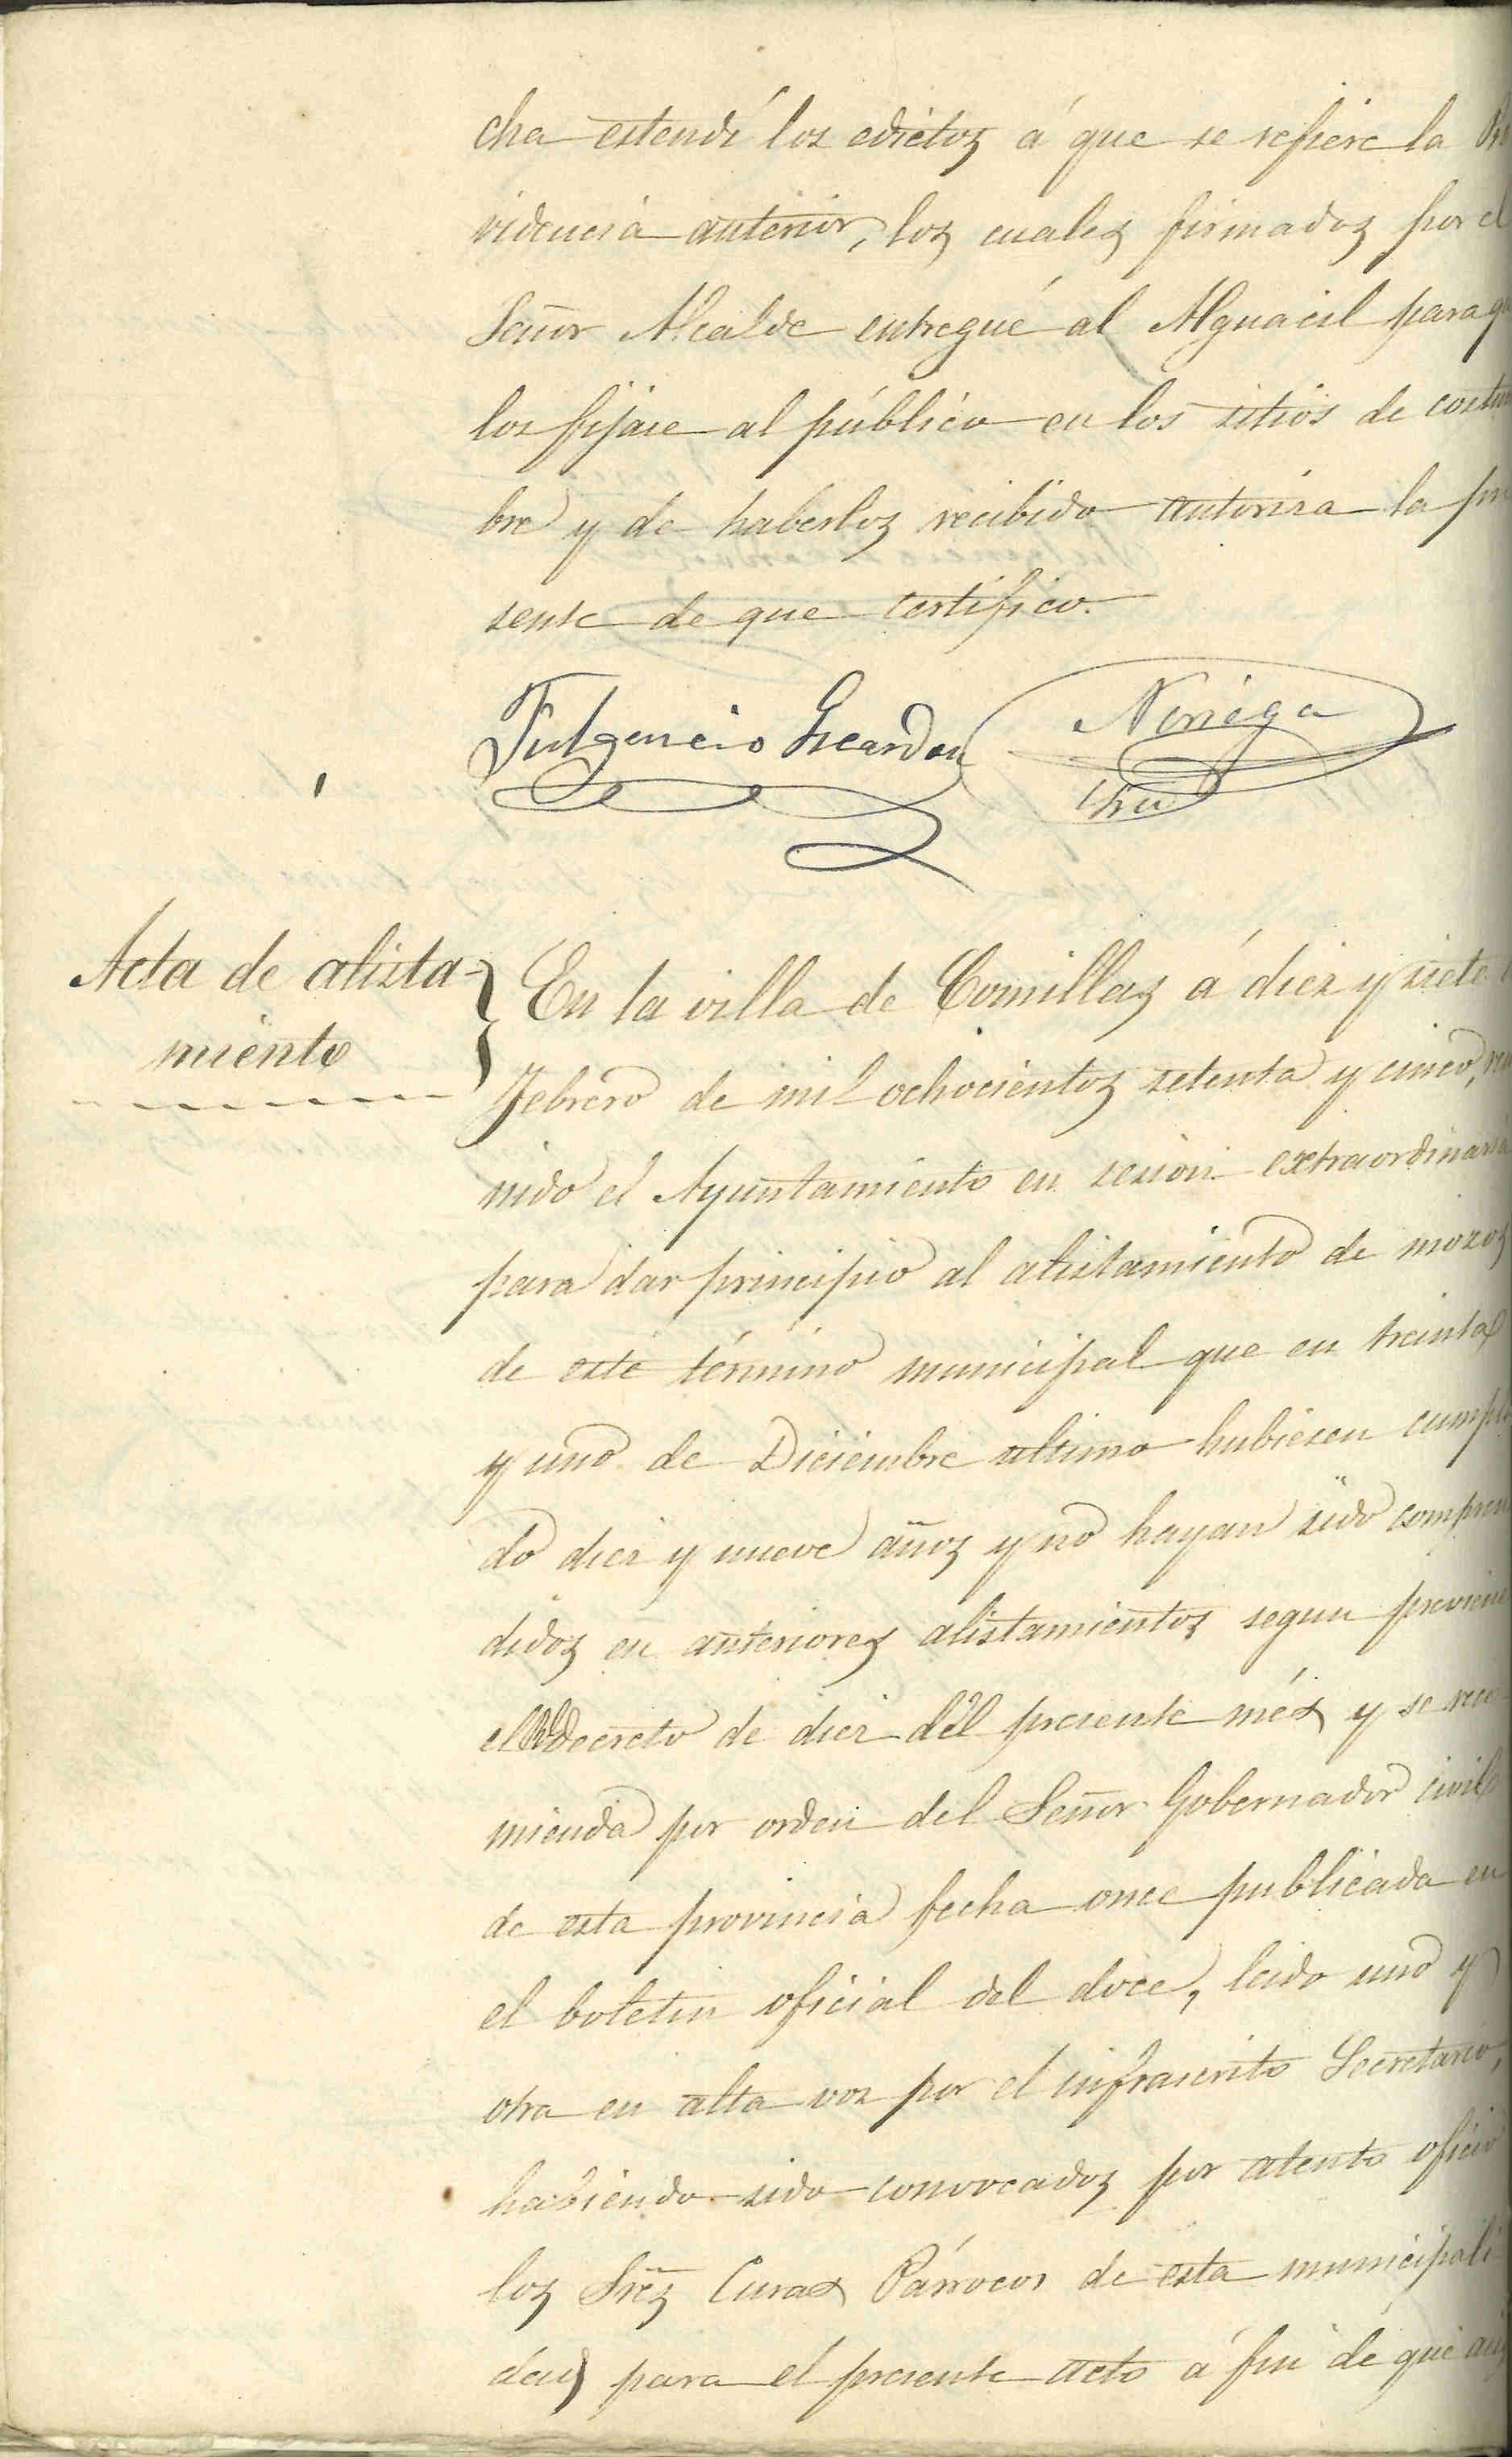 cha estendí los edictos á que se refiere la Pro
videncia anterior, los cuales firmados por el
Señor Alcalde entregué al Alguacil para q
los fijase al público en los sitios de costum
bre y de haberlos recibido autoriza la pre
sente de que certifico.
Fulgencio Noriega
Acta de alista-
miento
En la villa de Comillas á diez y siete
Febrero de mil ochocientos setenta y cinco, reu
nido el Ayuntamiento en sesion extraordinaria
para dar principio al alistamiento de mozos
de este término municipal que en treinta
y uno de Diciembre ultimo hubiesen cumpli
do diez y nueve años y no hayan sido compren
didos en anteriores alistamientos segun previene
el Rl decreto de diez del presente més y se reco
mienda por orden del Señor Gobernador civil
de esta provincia fecha once publicada en
el boletin oficial del doce, leido uno y
otra en alta voz por el infrascrito Secretario,
habiendo sido convocados por atento oficio
los Sres Curas Párrocos de esta municipali
dad para el presente acto á fin de que